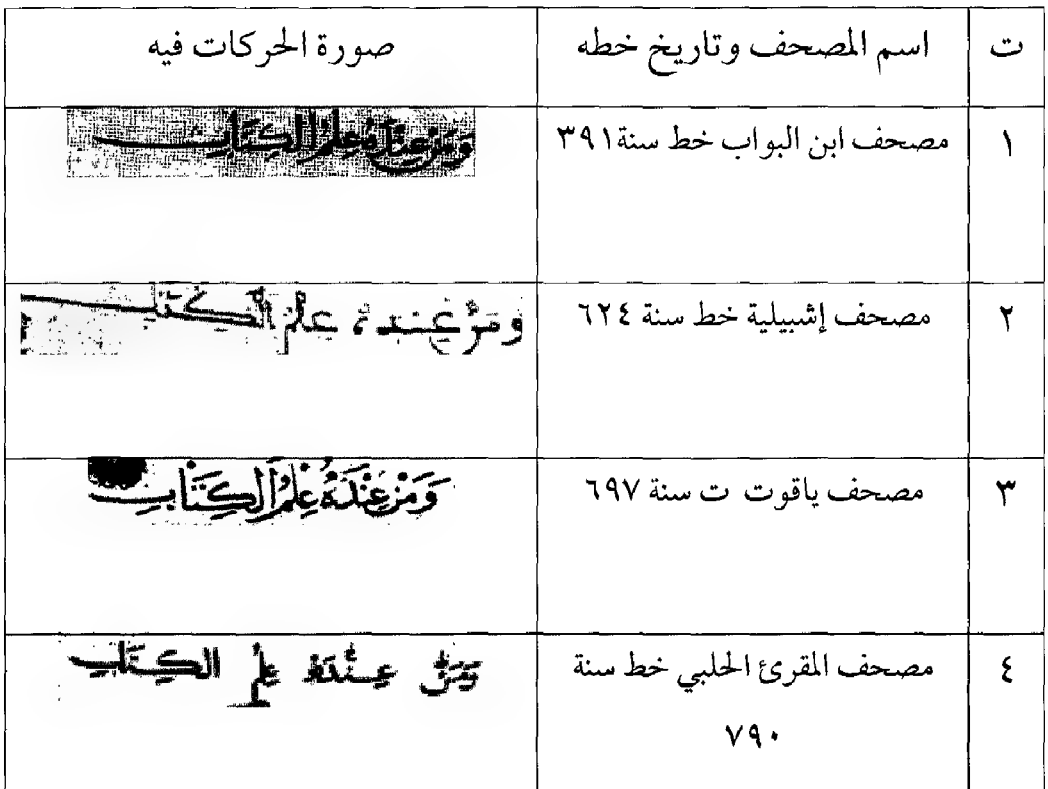 ت اسم المصحف وتاريخ خطه صورة الحركات فيه
١ مصحف ابن البواب خط سنة٣٩١ وَمَنْ عِنْدَهُ عِلْمُ الْكِتَابِ
٢ مصحف إشبيلية خط سنة ٦٢٤ ومَنْ عِندهُ عِلْمُ الْكِتَبِ
٣ مصحف ياقوت ت سنة ٦٩٧ وَمَنْ عِنْدَهُ عِلْمُ الْكِتَابِ
٤ مصحف المقرئ الحلبي خط سنة وَمَنْ عِنْدَهُ عِلْمُ الكِتَابِ
٧٩٠